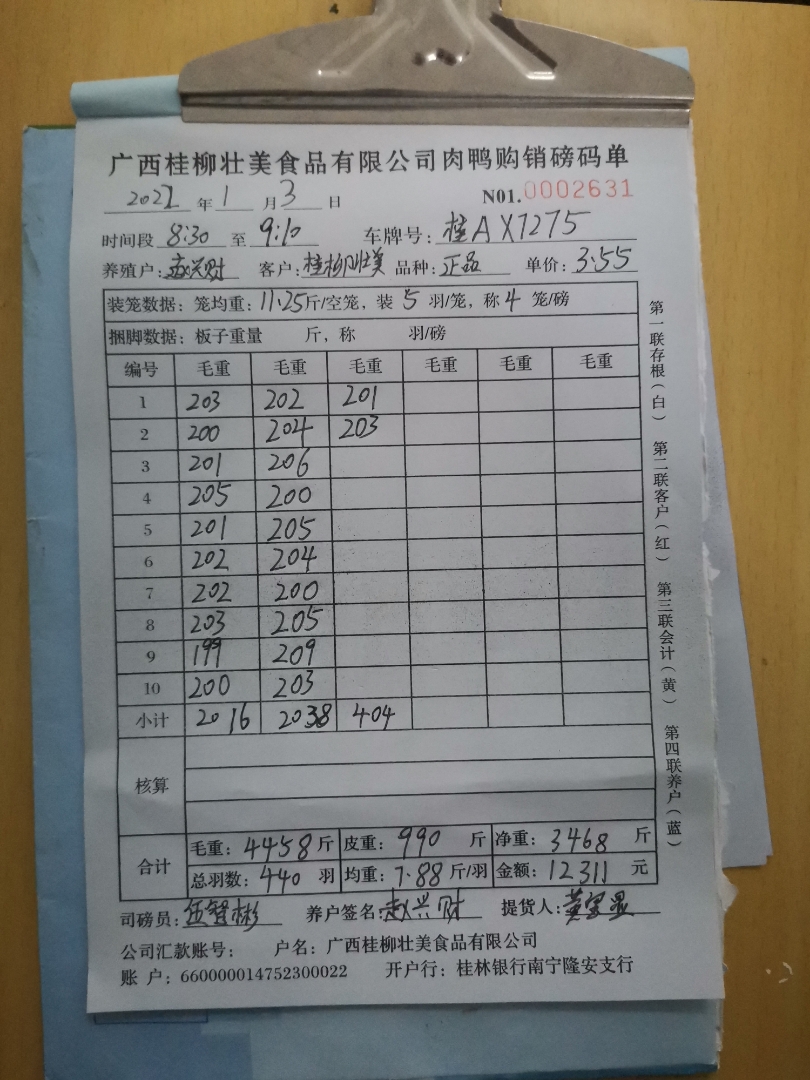 广西桂柳壮美食品有限公司肉鸭购销磅码单
2022年1月3日 N01.0002631
时间段 8:30 至 9:10 车牌号: 桂AX7275
养殖户: 赵兴财 客户: 桂柳壮美 品种: 正品 单价: 3.55
装笼数据: 笼均重: 11.25斤/空笼, 装 5 羽/笼, 称 4 笼/磅
捆脚数据: 板子重量 斤, 称 羽/磅
编号 毛重 毛重 毛重 毛重 毛重 毛重
1 203 202 201
2 200 204 203
3 201 206
4 205 200
5 201 205
6 202 204
7 202 200
8 203 205
9 199 209
10 200 203
小计 2016 2038 404
核算
合计
毛重: 4458斤 皮重: 990 斤 净重: 3468 斤
总羽数: 440 羽 均重: 7.88 斤/羽 金额: 12311 元
司磅员: 伍智彬 养户签名: 赵兴财 提货人: 黄
公司汇款账号: 户名: 广西桂柳壮美食品有限公司
账 户: 660000014752300022 开户行: 桂林银行南宁隆安支行
第一联存根(白) 第二联客户(红) 第三联会计(黄) 第四联养户(蓝)